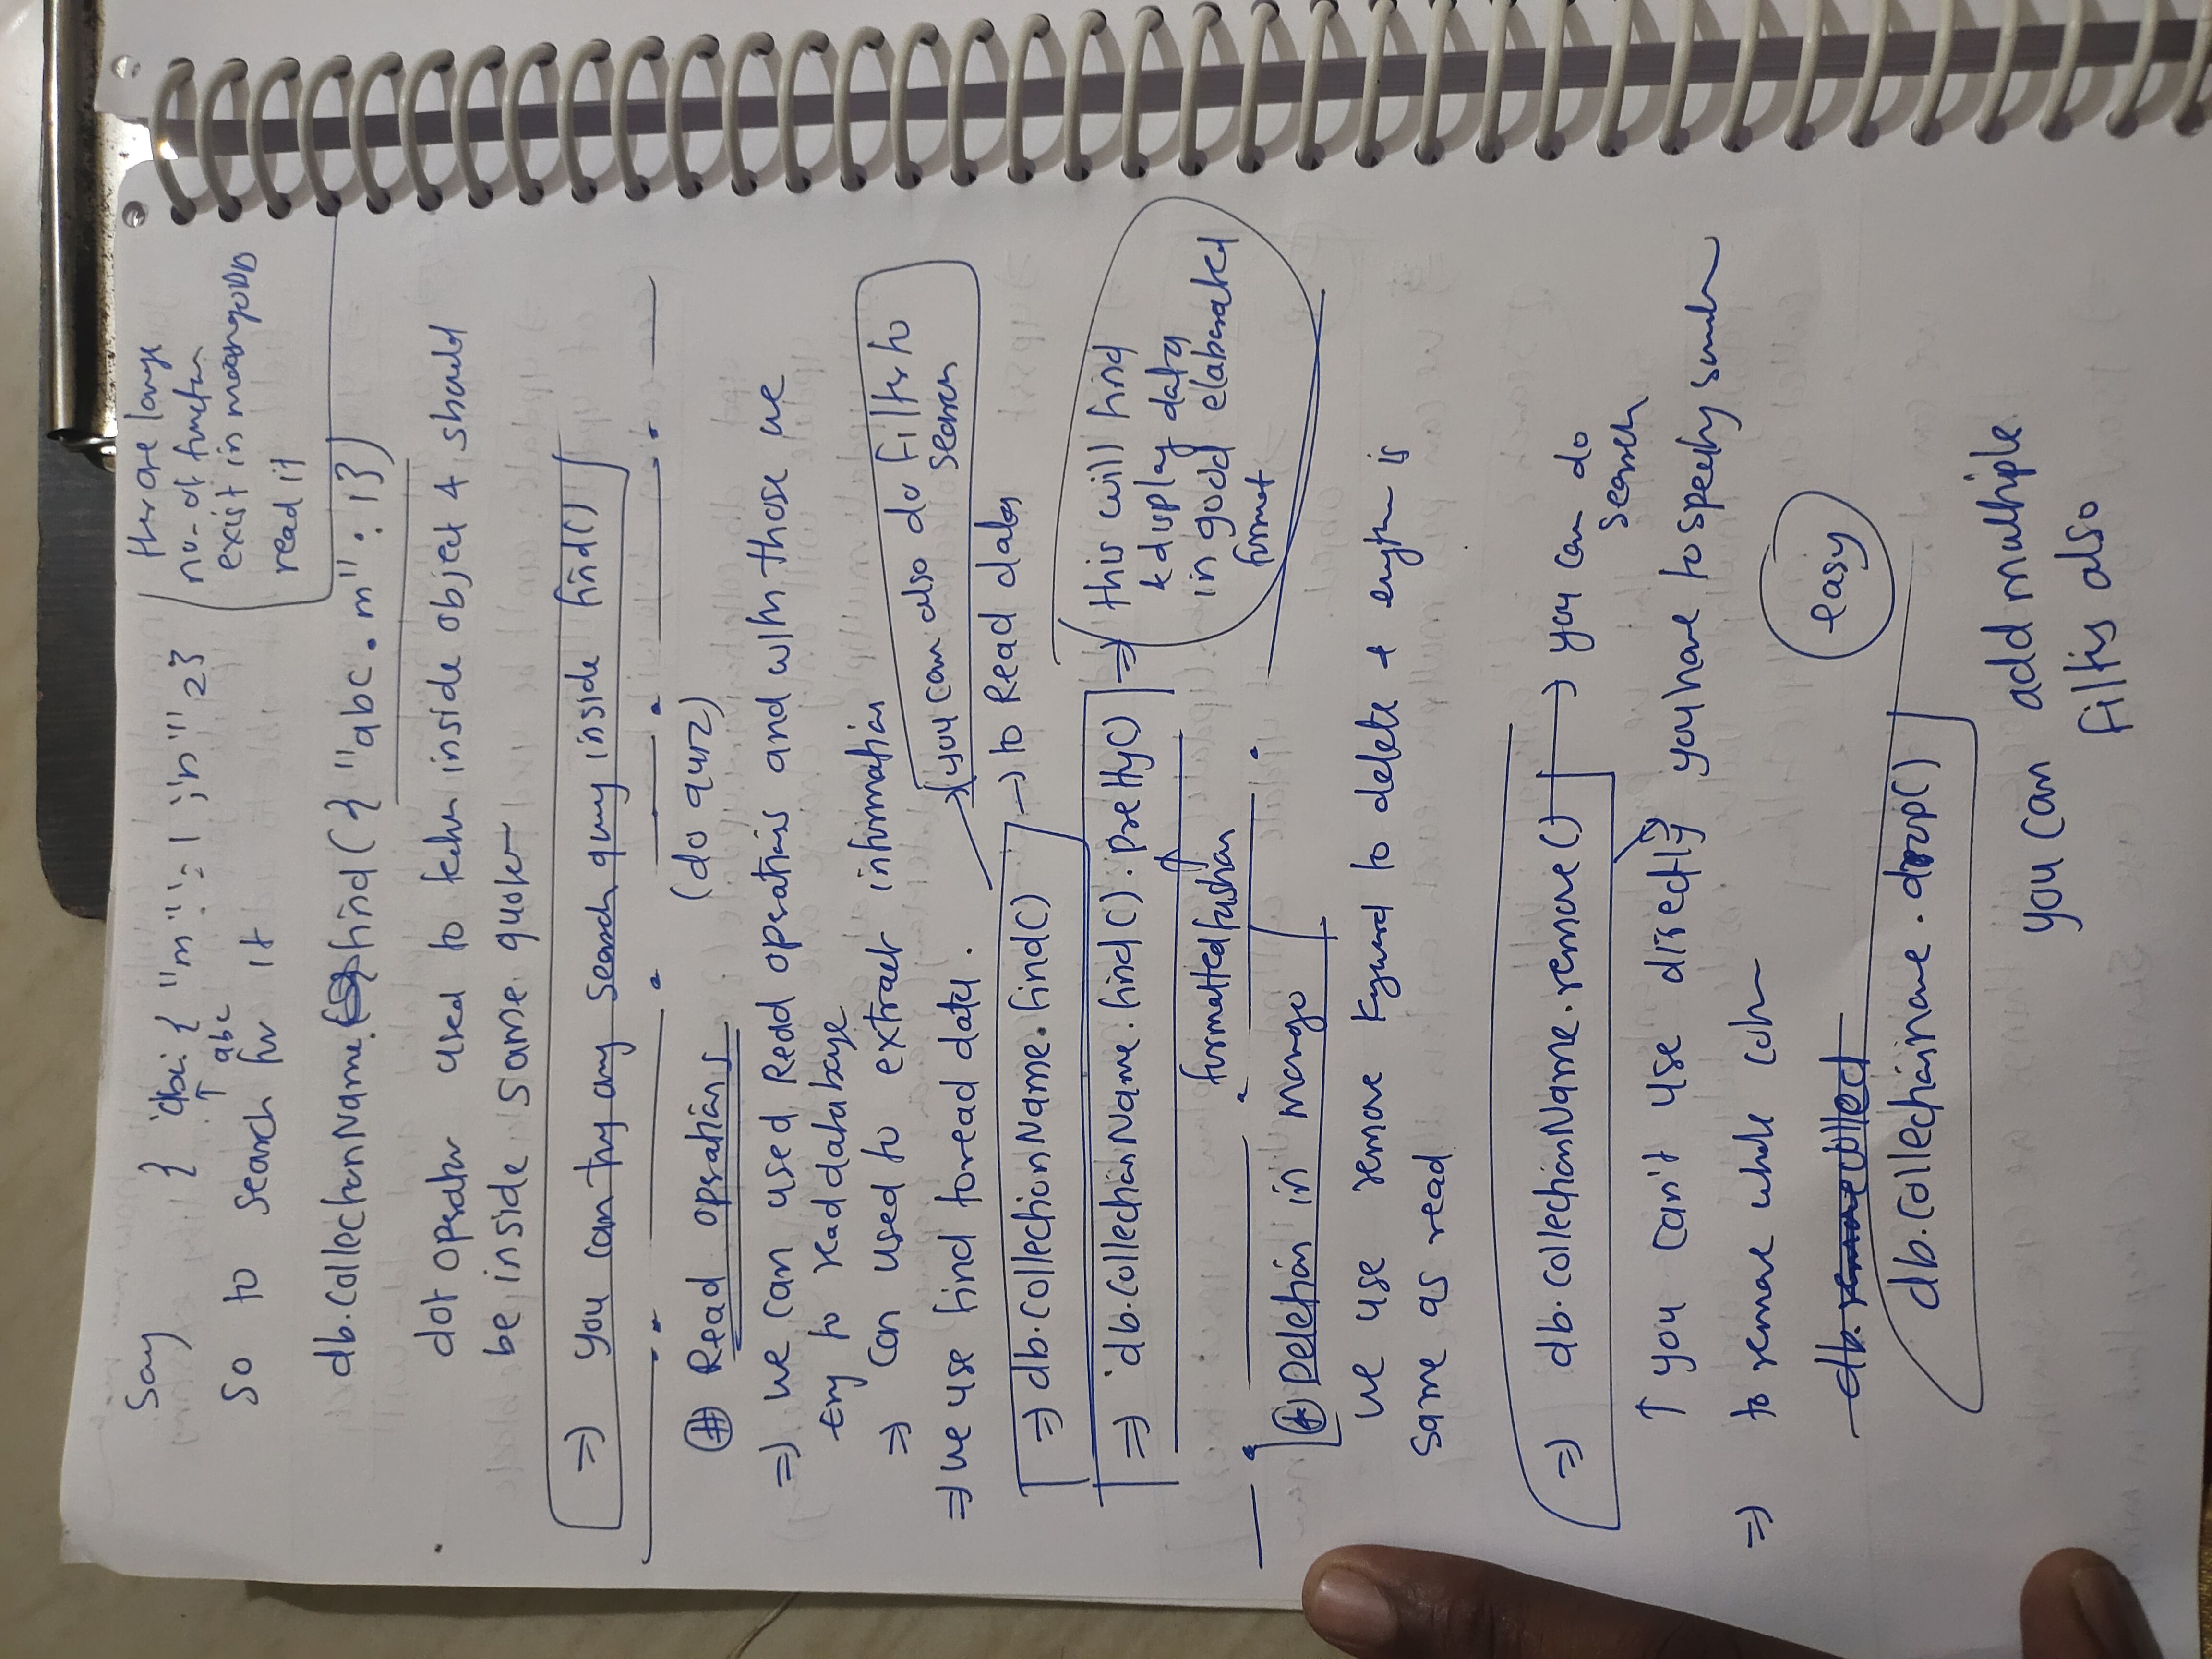 Say { abc: { "m" : 1 ; "n" 2}
↑ abc
So to search for it
ther are large
no. of function
exist in moongoDB
read it
db.collectionName.find({ "abc.m" : 1})
dot operator used to inside object & should
be inside same quotes
=> you can try any search query inside find()
(do quiz)
# Read operations
=> we can used Read operations and with those we
try to read database
=> can used to extract information
=> we use find to read data.
you can also do filter to
search
=> db.collectionName.find() -> to Read data
=> db.collectionName.find().pretty() => this will find
& display data
in good elaborated
format
formatted fashion
Deletion in Mongo
we use remove keyword to delete & is
same as read
=> db.collectionName.remove() -> you can do
search
↑ you can't use directly you have to specify
=> to remove whole
db. remove collect
easy
db.collectionname.drop()
you can add multiple
filters also